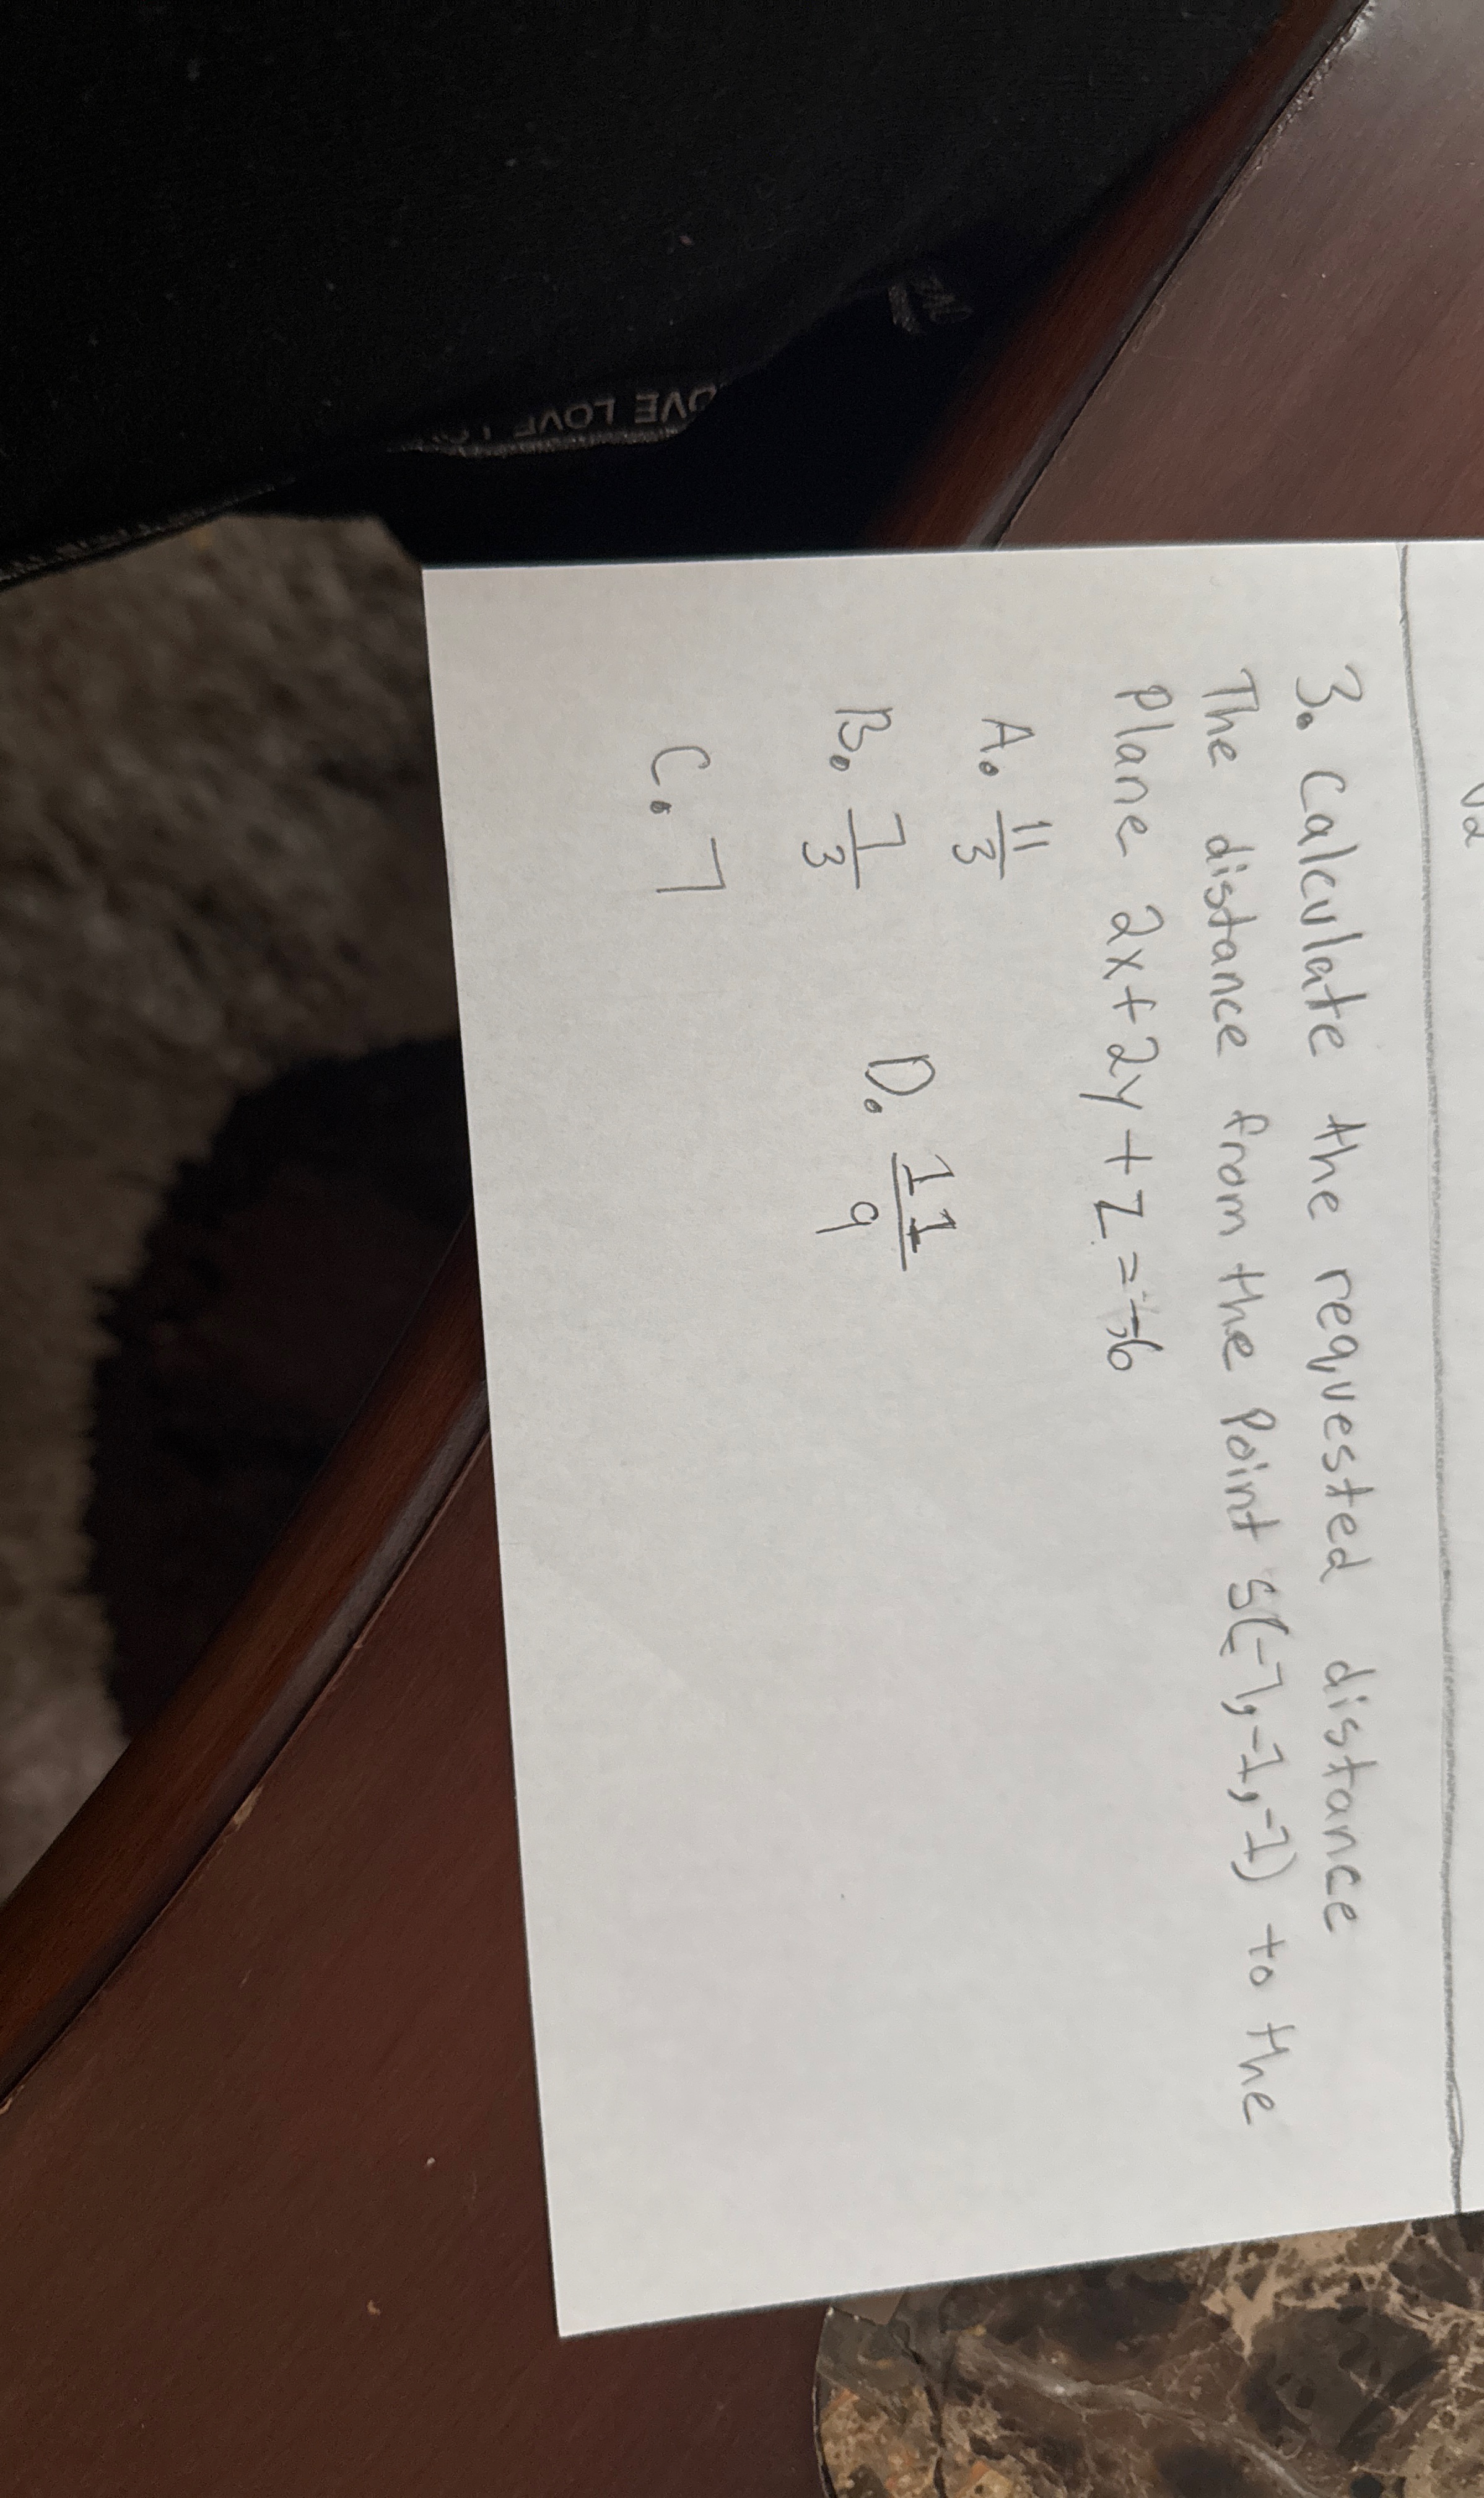 3. Calculate the requested distance
The distance from the Point S(-7,-1,-1) to the
Plane 2x+2y+z=-6
A. 11/3
B. 7/3
C. 7
D. 11/9
OVE LOVE